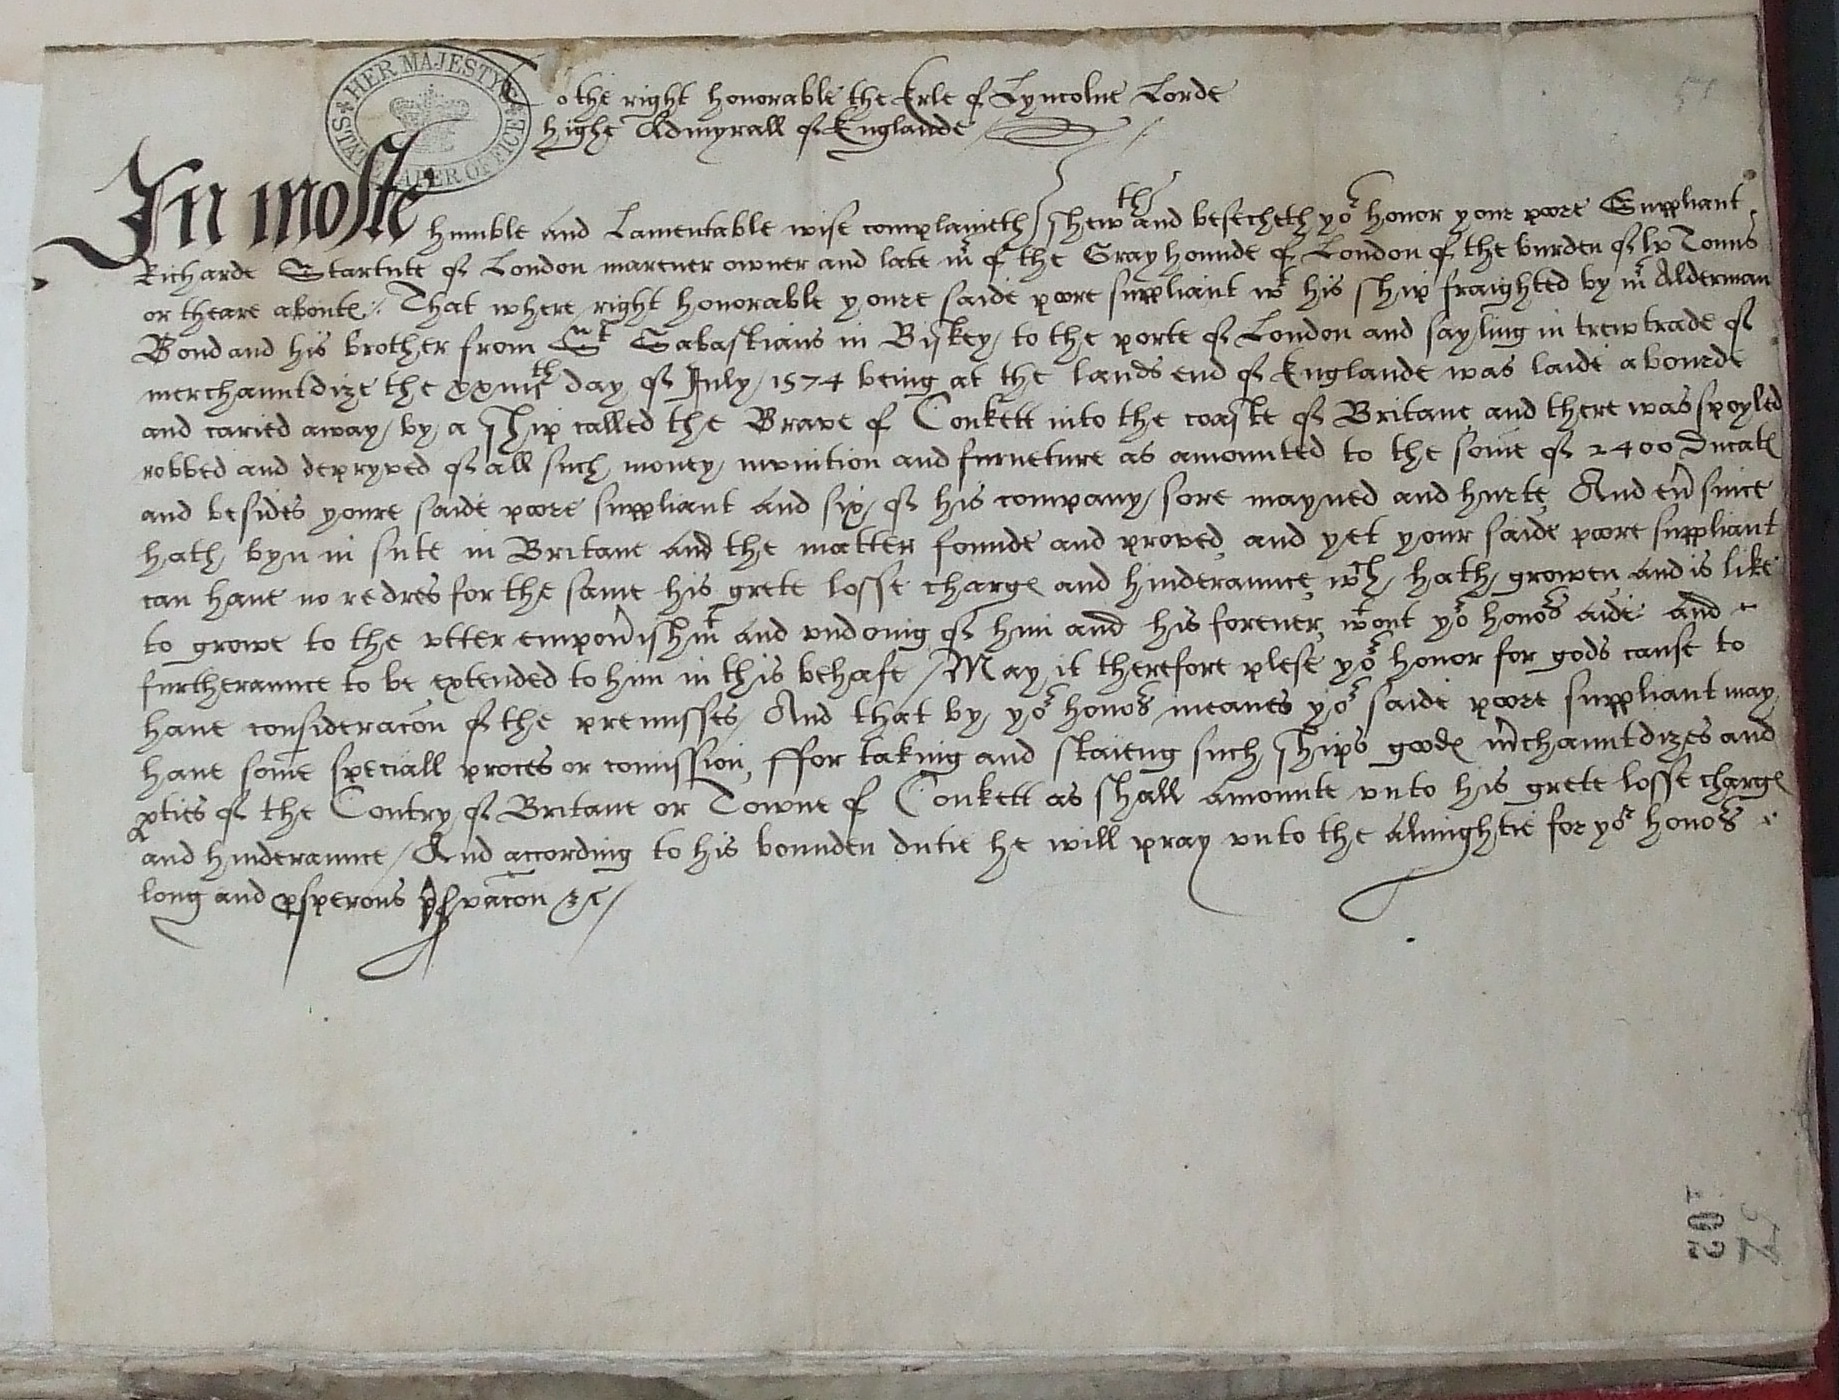 HER MAJESTY'S STATE PAPER OFFICE
To the right honorable the Erle of Lyncolne Lorde
highe Admyrall of Englande
51
In moste humble and Lamentable wise complaineth shewth and besecheth yor honor your poore Suppliant
Richarde Startute of London marener owner and late mr of the Grayhounde of London of the burden of lx Tonns
or theare aboute. That where right honorable youre saide poore suppliant wt his ship fraighted by mr Alderman
Bond and his brother from St Sabastians in Biskey to the porte of London and sayling in trew trade of
merchauntdize the xxiiiith day of July 1574 being at the lands end of Englande was laide abourde
and caried away by a ship called the Brave of Conkett into the coaste of Britane and there was spoyled
robbed and depryved of all such money munition and furneture as amounted to the some of 2400 Ducats
and besides youre saide poore suppliant and six of his company sore mayned and hurte And ev̄ since
hath byn in sute in Britane and the matter founde and proved and yet your saide poore suppliant
can have no redres for the same his grete losse charges and hinderaunce, wch hath growen and is like
to growe to the utter empov̄ishmt and undoing of him and his forever, wtout yor honors aide and
furtheraunce to be extended to him in this behafe / May it therefore plese yor honor for gods cause to
have consideracōn of the premisses, And that by yor honors meanes yor saide poore suppliant may
have some speciall proces or comission, ffor taking and staieng such ships goodes m̄chauntdizes and
pties of the Contry of Britane or Towne of Conkett as shall amounte unto his grete losse charges
and hinderaunce / And according to his bounden dutie he will pray unto the almightie for yor honors
long and psperous p̄servacōn &c /
102